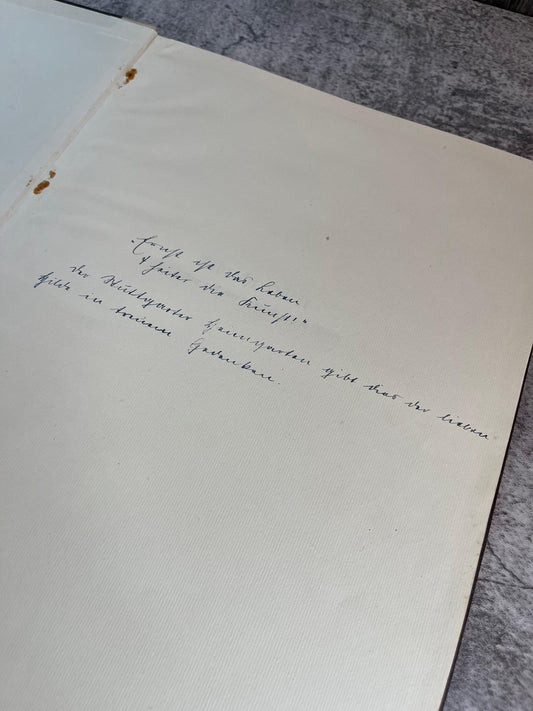 „Ernst ist das Leben
& heiter die Kunst!"
Der Stuttgarter gibt dies der lieben
Hilde in treuem Gedenken.